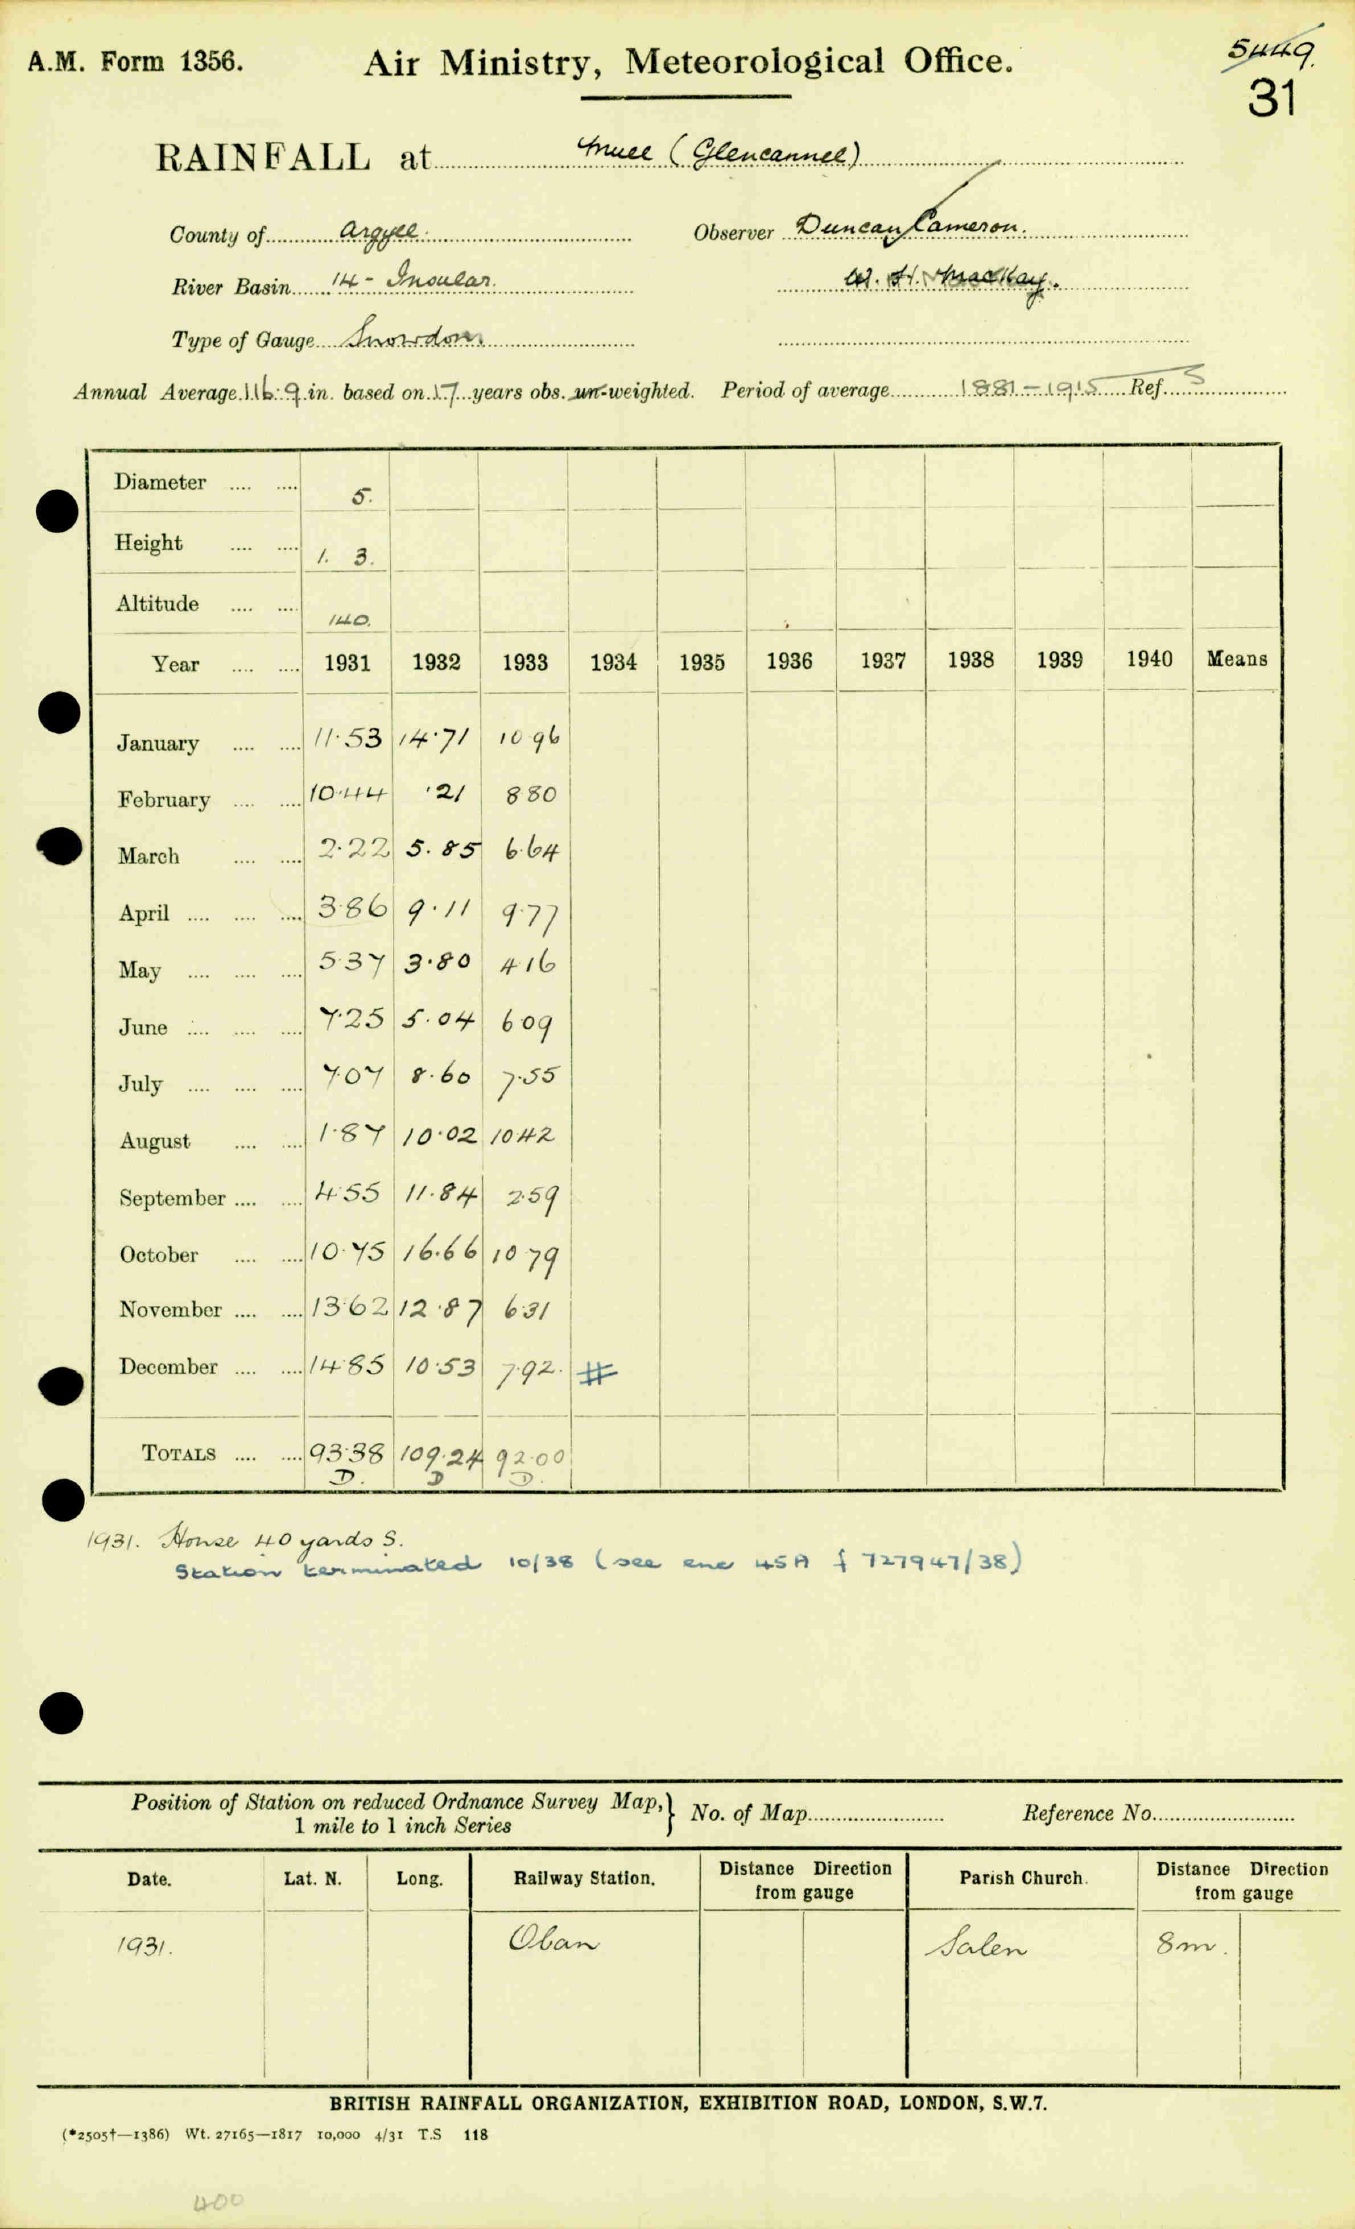 A.M. Form 1356.
Air Ministry, Meteorological Office.
5449.
31
RAINFALL at Mull (Glencannel)
County of Argyll. Observer Duncan Cameron.
River Basin 14 - Insular. W. H. MacKay.
Type of Gauge Snowdon.
Annual Average 116.9 in. based on 17 years obs. un-weighted. Period of average 1881-1915 Ref. S
Diameter .... .... 5.
Height .... .... 1. 3.
Altitude .... .... 140.
Year .... .... 1931 1932 1933 1934 1935 1936 1937 1938 1939 1940 Means
January .... .... 11.53 14.71 10.96
February .... .... 10.44 .21 8.80
March .... .... 2.22 5.85 6.64
April .... .... .... 3.86 9.11 9.77
May .... .... .... 5.37 3.80 4.16
June .... .... .... 7.25 5.04 6.09
July .... .... .... 7.07 8.60 7.55
August .... .... 1.87 10.02 10.42
September .... .... 4.55 11.84 2.59
October .... .... 10.75 16.66 10.79
November .... .... 13.62 12.87 6.31
December .... .... 14.85 10.53 7.92. #
TOTALS .... .... 93.38 109.24 92.00
D. D D.
1931. House 40 yards S.
Station terminated 10/38 (see enc 45A f 727947/38)
Position of Station on reduced Ordnance Survey Map, } No. of Map Reference No.
1 mile to 1 inch Series
Date. Lat. N. Long. Railway Station. Distance Direction from gauge Parish Church. Distance Direction from gauge
1931. Oban Salen 8m.
BRITISH RAINFALL ORGANIZATION, EXHIBITION ROAD, LONDON, S.W.7.
(*2505†—1386) Wt. 27165—1817 10,000 4/31 T.S 118
400